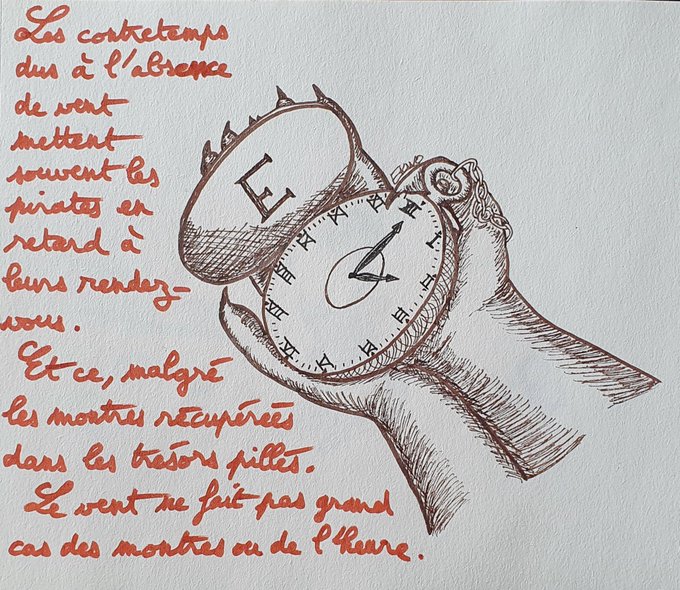 Les contretemps
dus à l'absence
de vent
mettent
souvent les
pirates en
retard à
leurs rendez-
vous.
Et ce, malgré
les montres récupérées
dans les trésors pillés.
Le vent ne fait pas grand
cas des montres ou de l'heure.
E
XII
I
II
III
IIII
V
VI
VII
VIII
IX
X
XI